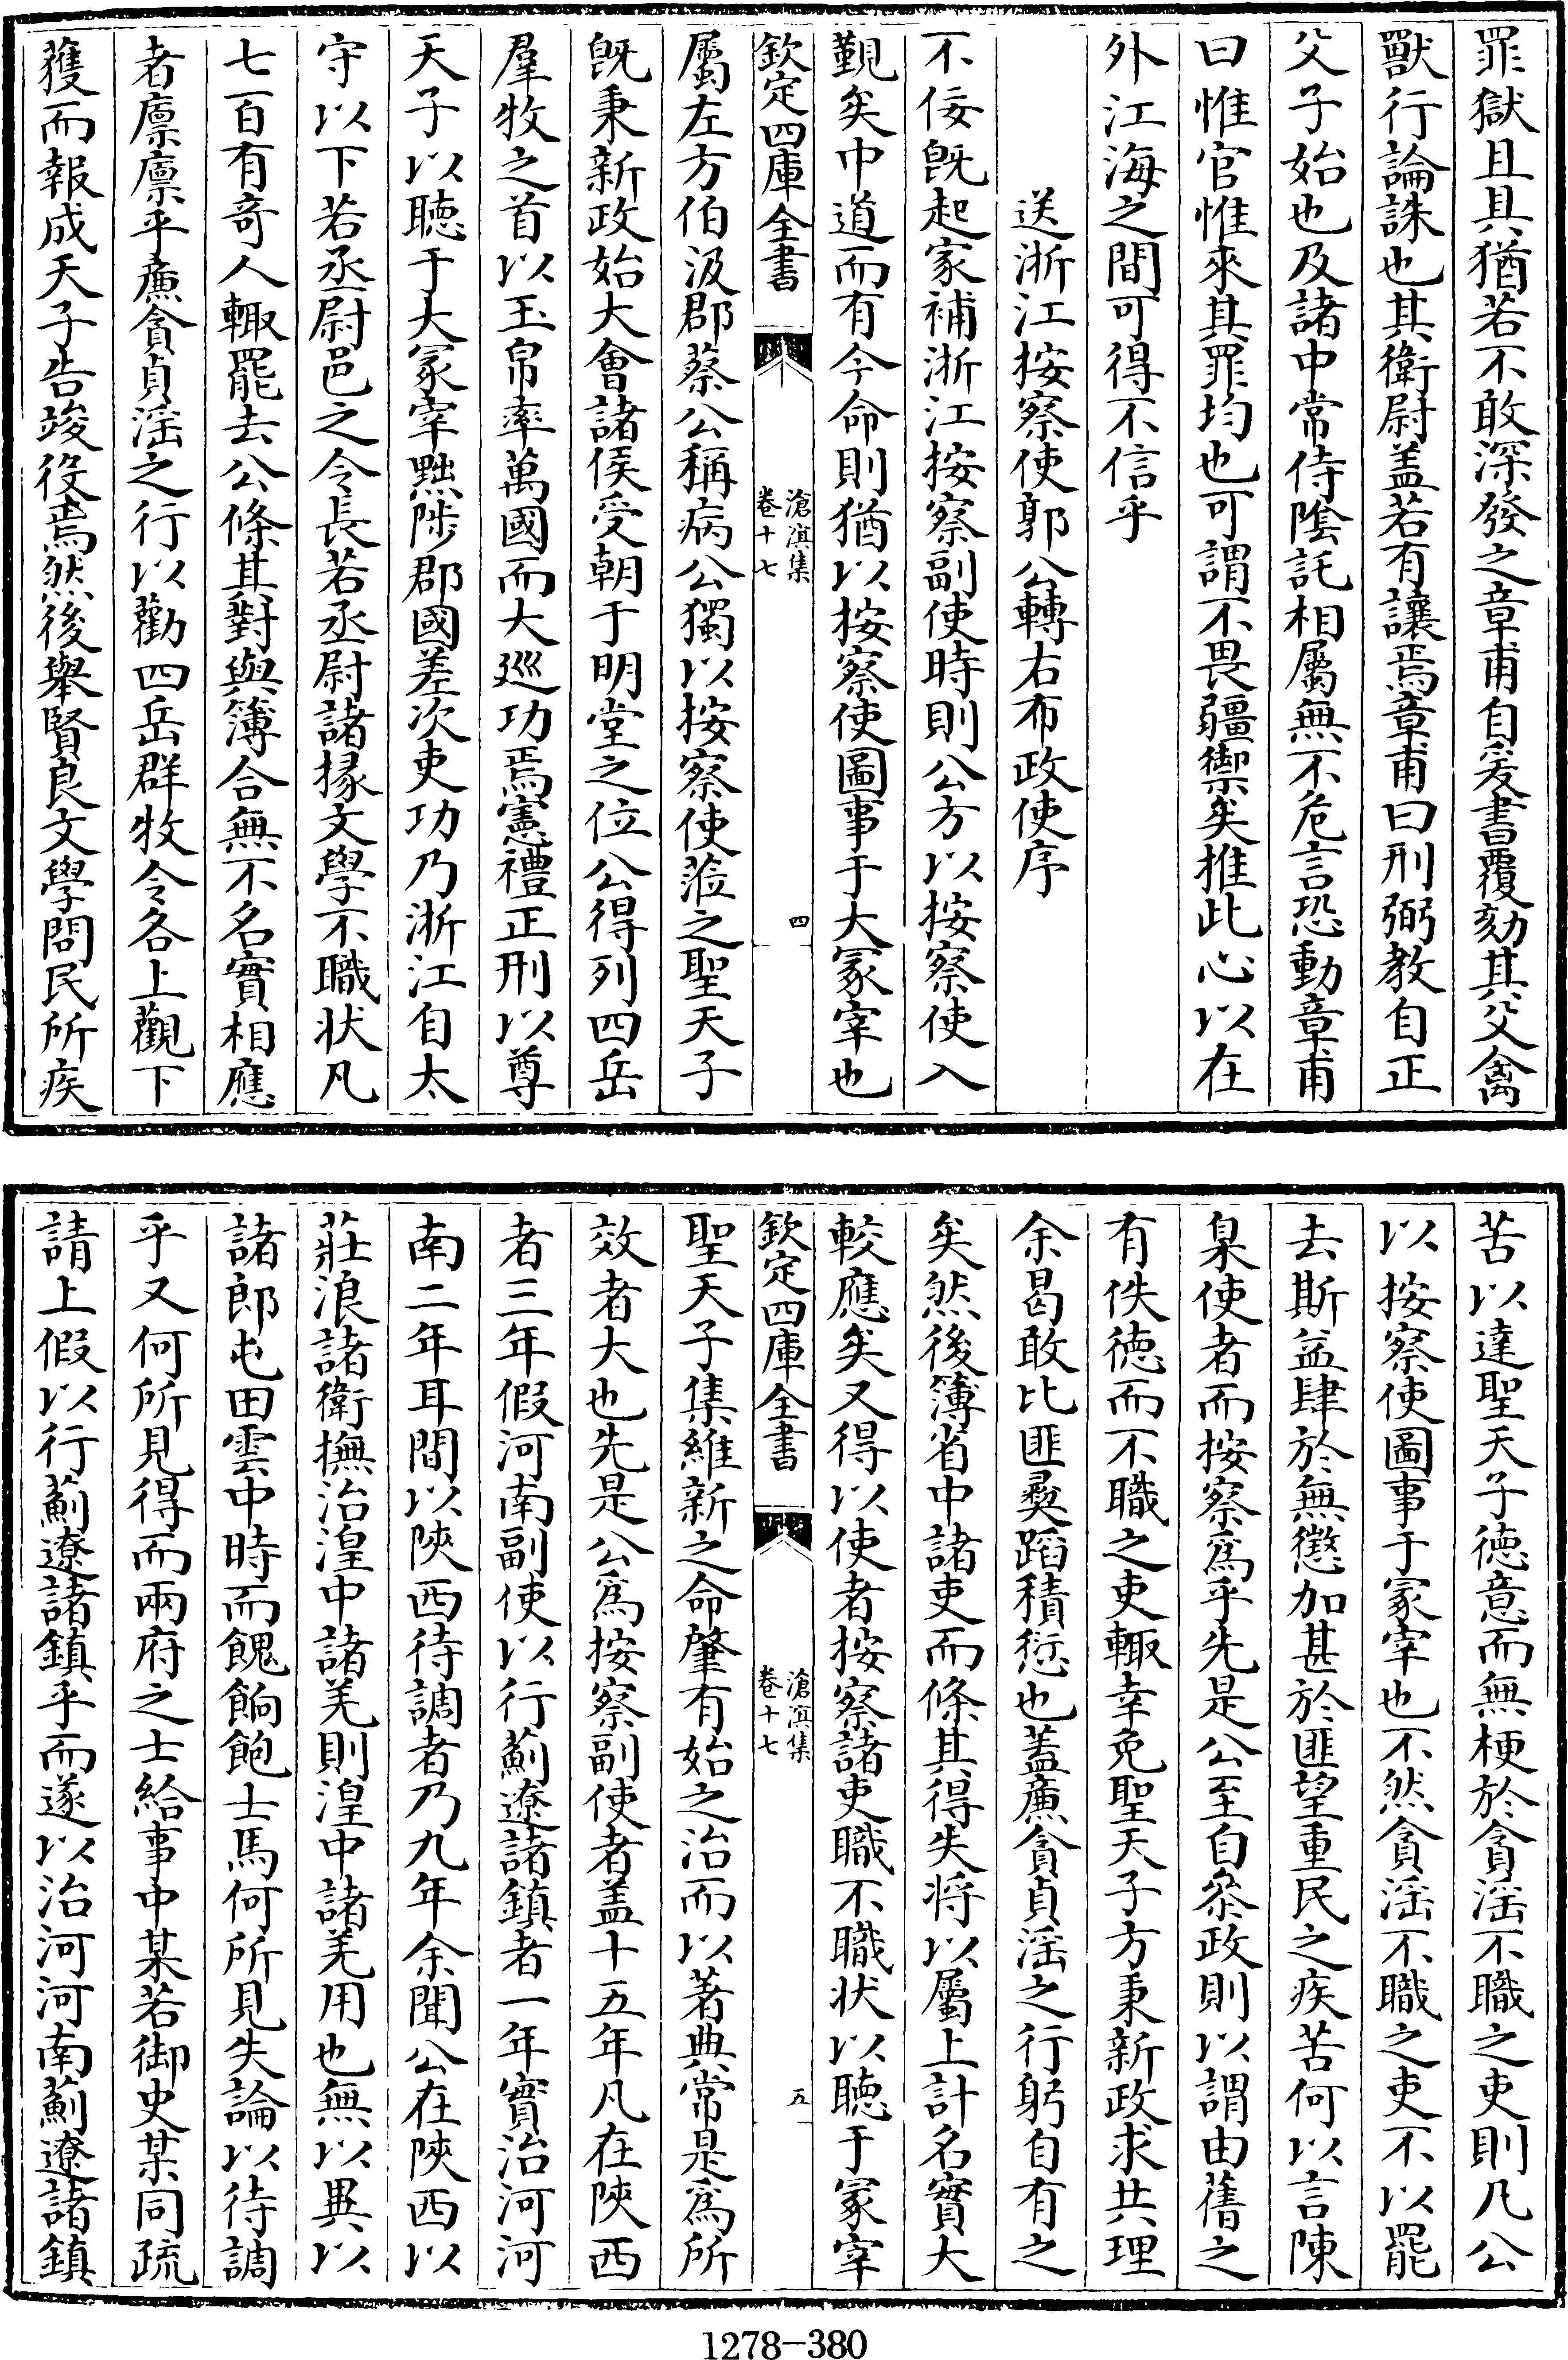 罪獄且具猶若不敢深發之章甫自爰書覆劾其父禽
獸行論誅也其衛尉盖若有讓焉章甫曰刑弼教自正
父子始也及諸中常侍隂託相屬無不危言恐動章甫
曰惟官惟來其罪均也可謂不畏疆禦矣推此心以在
外江海之間可得不信乎
送浙江按察使郭公轉右布政使序
不佞旣起家補浙江按察副使時則公方以按察使入
覲矣中道而有今命則猶以按察使圖事于大冡宰也
欽定四庫全書
滄溟集
卷十七
四
屬左方伯汲郡蔡公稱病公獨以按察使涖之聖天子
旣秉新政始大會諸侯受朝于明堂之位公得列四岳
羣牧之首以玉帛率萬國而大巡功焉憲禮正刑以尊
天子以聴于大冡宰黜陟郡國差次吏功乃浙江自太
守以下若丞尉邑之令長若丞尉諸掾文學不職狀凡
七百有奇人輙罷去公條其對與簿合無不名實相應
者廪廪乎亷貪貞淫之行以勸四岳群牧令各上觀下
獲而報成天子告竣役焉然後舉賢良文學問民所疾
苦以達聖天子徳意而無梗於貪淫不職之吏則凡公
以按察使圖事于冡宰也不然貪淫不職之吏不以罷
去斯益肆於無懲加甚於匪望重民之疾苦何以言陳
臬使者而按察爲乎先是公至自叅政則以謂由舊之
有佚徳而不職之吏輙幸免聖天子方秉新政求共理
余曷敢比匪彞蹈積愆也蓋亷貪貞淫之行躬自有之
矣然後簿省中諸吏而條其得失将以屬上計名實大
較應矣又得以使者按察諸吏職不職状以聴于冡宰
欽定四庫全書
滄溟集
卷十七
五
聖天子集維新之命肇有始之治而以著典常是爲所
效者大也先是公爲按察副使者盖十五年凡在陜西
者三年假河南副使以行薊遼諸鎮者一年實治河河
南二年耳間以陜西待調者乃九年余聞公在陜西以
莊浪諸衛撫治湟中諸羌則湟中諸羌用也無以異以
諸郎屯田雲中時而餽餉飽士馬何所見失論以待調
乎又何所見得而兩府之士給事中某若御史某同疏
請上假以行薊遼諸鎮乎而遂以治河河南薊遼諸鎮
1278-380